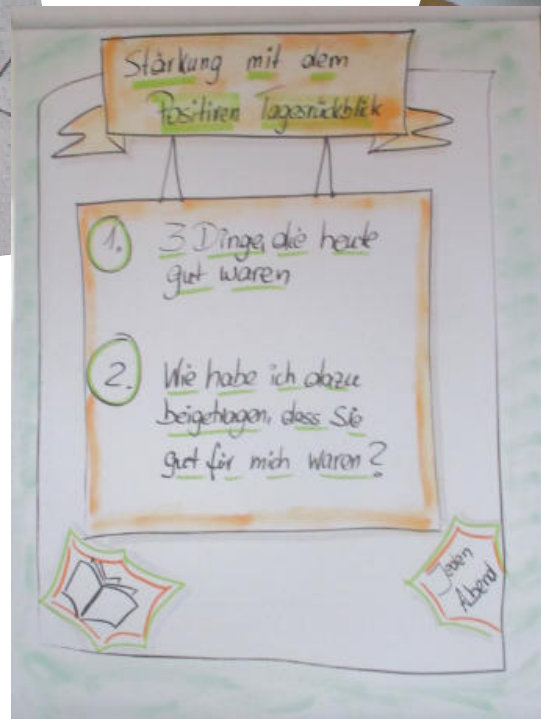 Stärkung mit dem
Positiven Tagesrückblick
1. 3 Dinge, die heute
gut waren
2. Wie habe ich dazu
beigetragen, dass Sie
gut für mich waren?
Jeden
Abend